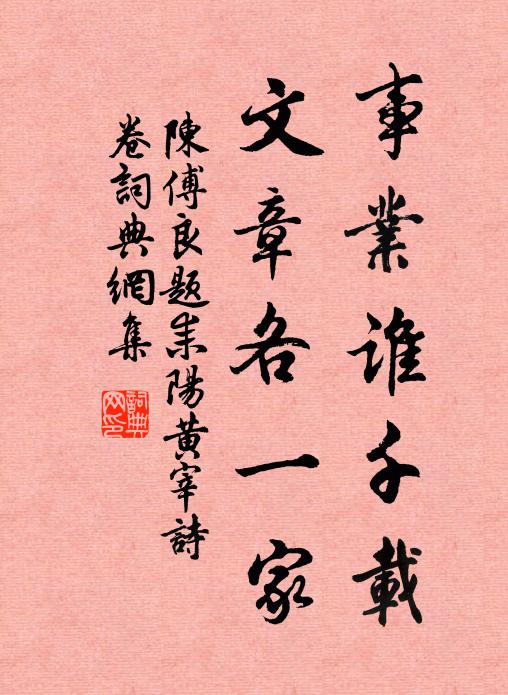 事業誰千載
文章各一家
陳傅良題耒陽黃宰詩
卷詞典網集
詞典網印